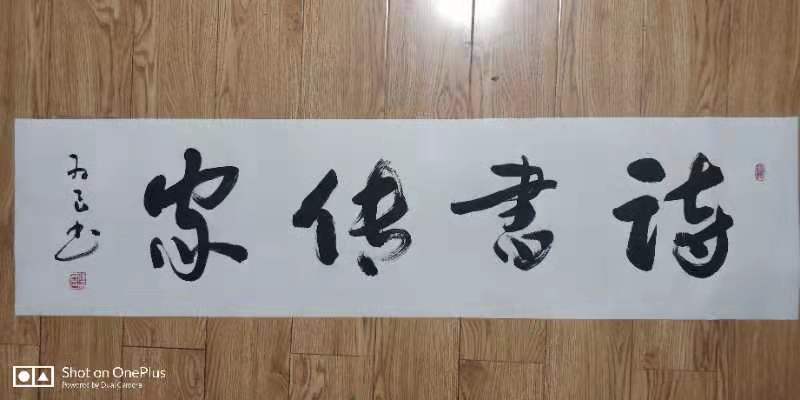 詩書传家
书
Shot on OnePlus
Powered by Dual Camera